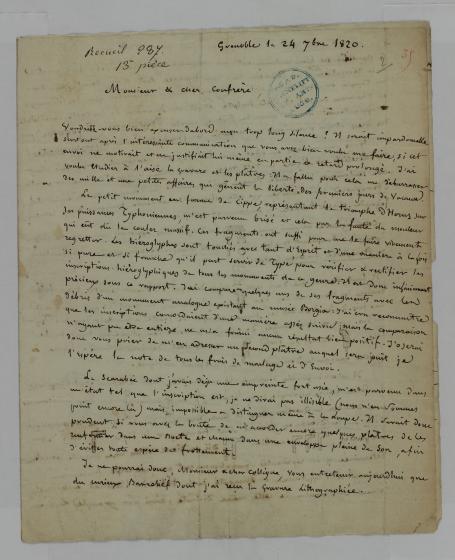 Recueil 987.
13e pièce
Grenoble le 24 7bre 1820.
Monsieur & cher Confrère
Voudrez-vous bien excuser d'abord mon trop long silence ? Il serait impardonnable
surtout après l'intéressante communication que vous avez bien voulu me faire, si cet
envoi ne motivait et ne justifiait lui même en partie ce retard prolongé. J'ai
voulu étudier à l'aise la gravure et les plâtres. Il a fallu pour cela me débarrasser
des mille et une petites affaires qui gênent la liberté des premiers jours de vacances.
Le petit monument en forme de Cippe représentant le triomphe d'Horus sur
les puissances Typhoniennes, m'est parvenu brisé et cela par la faute du mouleur
qui eut dû le couler massif. Ces fragments ont suffi pour me le faire vivement
regretter. Les hiéroglyphes sont touchés avec tant d'Esprit et d'une manière à la fois
si pure et si franche qu'il peut servir de Type pour vérifier & rectifier les
inscriptions hiéroglyphiques de tous les monuments de ce genre. Il est donc infiniment
précieux sous ce rapport. J'ai comparé quelques uns de ses fragments avec les
débris d'un monument analogue existant au musée Borgia : j'ai cru reconnaître
que les inscriptions concordaient d'une manière assez suivie, mais la comparaison
n'ayant pu être entière ne m'a fourni aucun résultat bien positif. J'oserai
donc vous prier de m'en adresser un second plâtre auquel sera joint je
l'espère la note de tous les frais de moulage et d'Envoi.
Le Scarabée dont j'avais déjà une empreinte fort usée, m'est parvenu dans
un état tel que l'inscription est, je ne dirai pas illisible (nous n'en sommes
point encore là) mais impossible à distinguer même à la loupe. Il serait donc
prudent, si vous avez la bonté de m'accorder encore quelques plâtres de les
renfermer dans une Boëte et chacun dans une enveloppe pleine de Son, afin
d'éviter toute espèce de frottement.
Je ne pourrai donc, Monsieur & cher Collègue, vous entretenir aujourd'hui que
du curieux Basrelief dont j'ai reçu la Gravure Lithographiée.